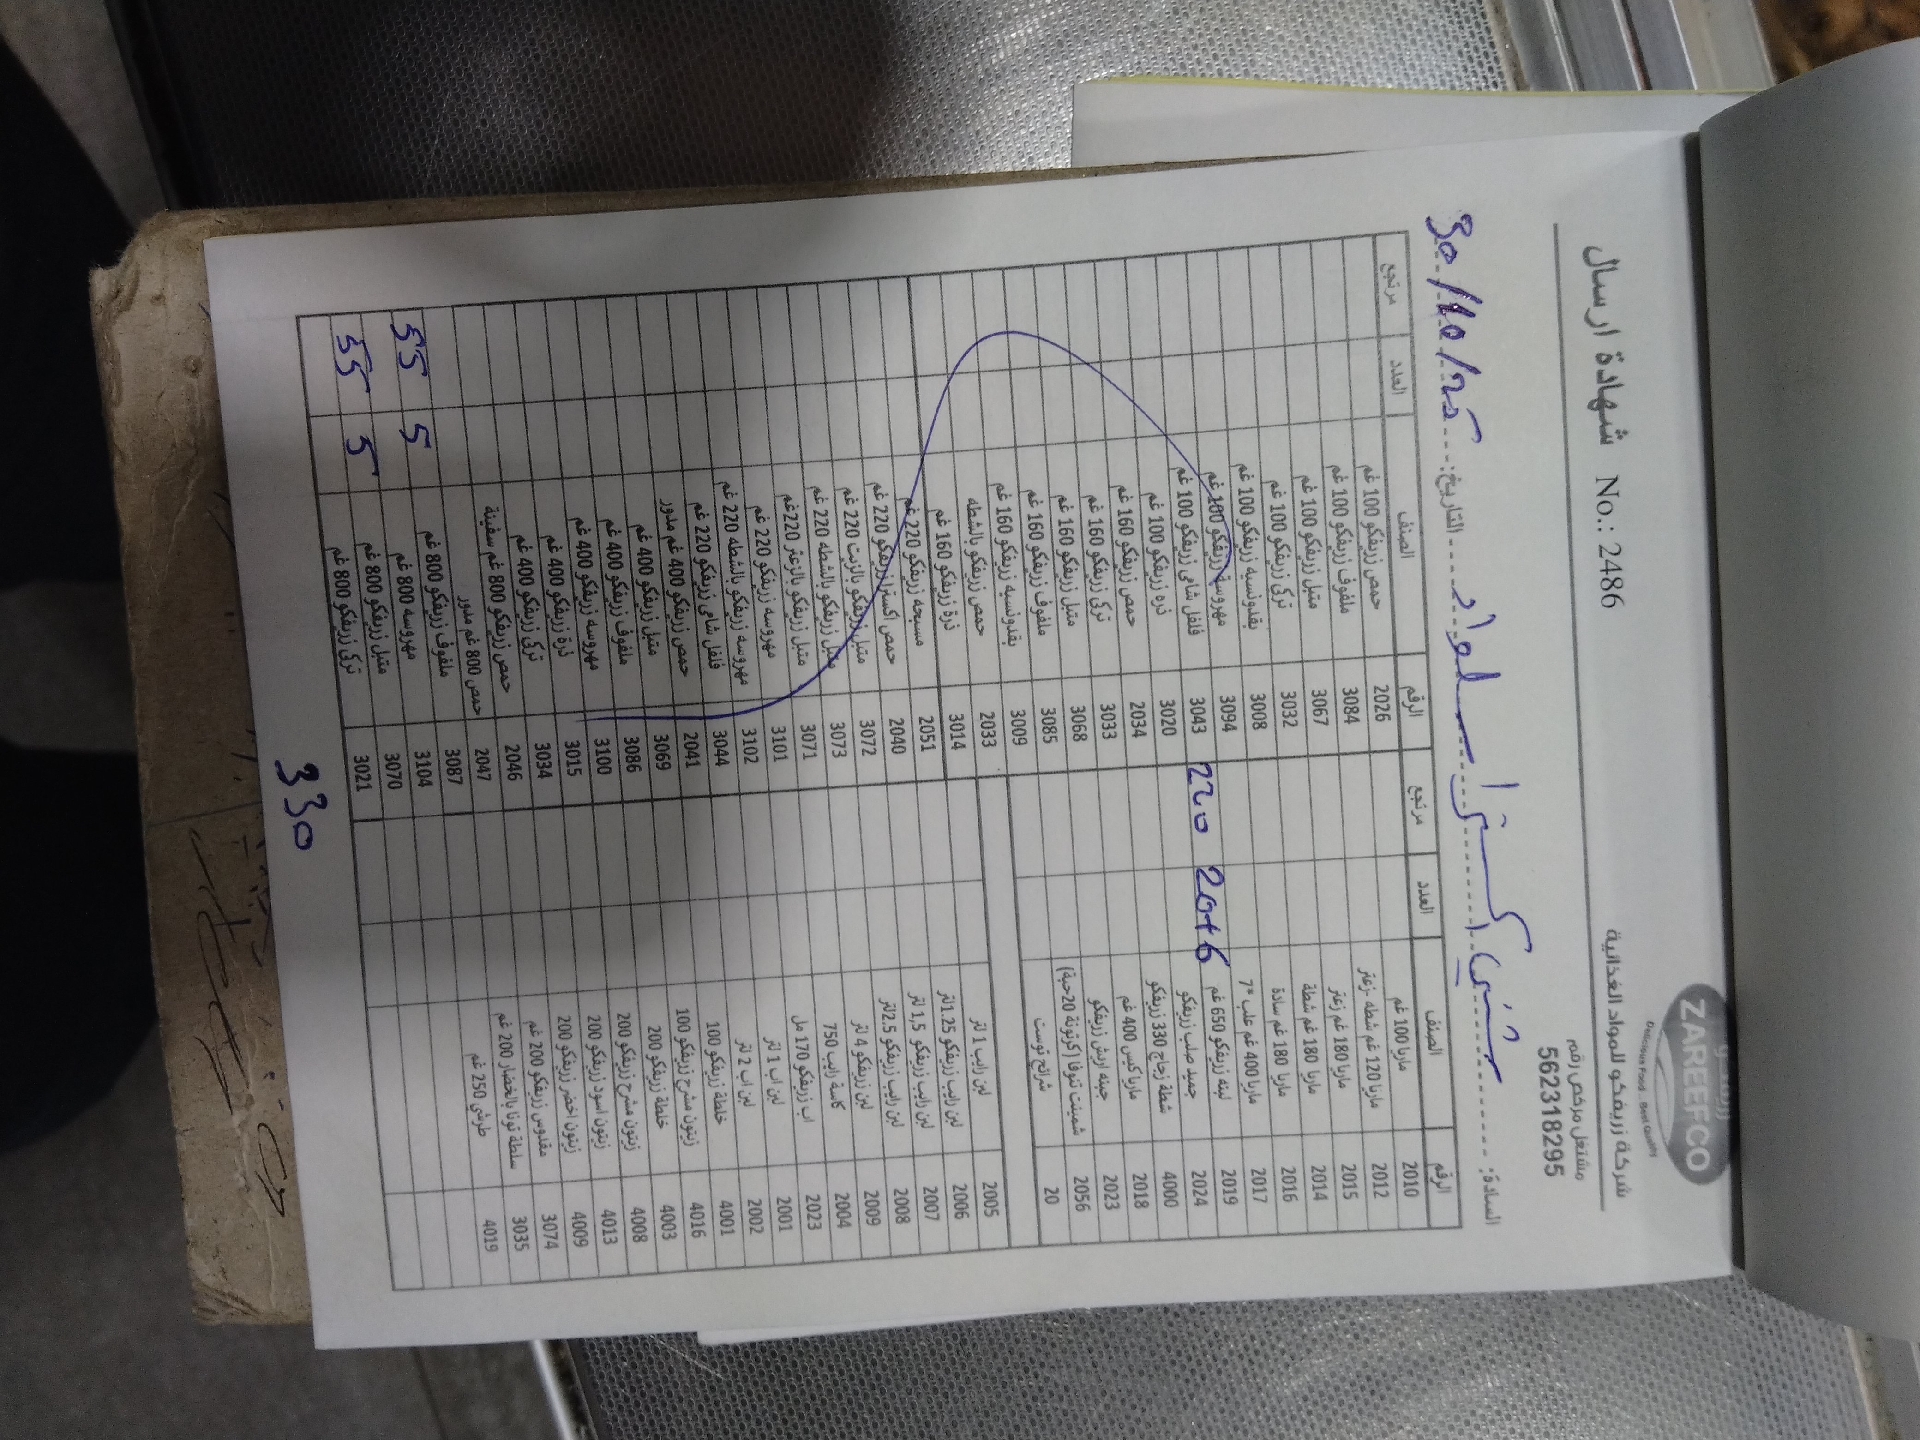 زريفكو
ZAREFCO
Delicious Food .. Best Quality
شركة زريفكو للمواد الغذائية
مشتغل مرخص رقم
562318295
شهادة ارسال No.: 2486
السادة: التاريخ: 30/10/25
الرقم الصنف العدد مرتجع الرقم الصنف العدد مرتجع
2010 مارينا 100 غم 2026 حمص زريفكو 100 غم
2012 مارينا 120 غم شطه -زعتر 3084 ملفوف زريفكو 100 غم
2015 مارينا 180 غم زعتر 3067 متبل زريفكو 100 غم
2014 مارينا 180 غم شطة 3032 تركي زريفكو 100 غم
2016 مارينا 180 غم سادة 3008 بقدونسية زريفكو 100 غم
2017 مارينا 400 غم علب *7 3094 مهروسة زريفكو 100 غم
2019 لبنه زريفكو 650 غم 20+6 220 3043 فلفل شامي زريفكو 100 غم
2024 جميد صلب زريفكو 3020 ذره زريفكو 100 غم
4000 شطة زجاج 330 زريفكو 2034 حمص زريفكو 160 غم
2018 مارينا كيس 400 غم 3033 تركي زريفكو 160 غم
2023 جبينه اريش زريفكو 3068 متبل زريفكو 160 غم
2056 شمينت تنوفا (كرتونة 20حبة) 3085 ملفوف زريفكو 160 غم
20 شرائح توست 3009 بقدونسية زريفكو 160 غم
2033 حمص زريفكو بالشطه
2005 لبن رايب 1 لتر 3014 ذرة زريفكو 160 غم
2006 لبن رايب زريفكو 1.25لتر 2051 مسبحه زريفكو 220 غم
2007 لبن رايب زريفكو 1,5 لتر 2040 حمص اكسترا زريفكو 220 غم
2008 لبن رايب زريفكو 2.5لتر 3072 متبل زريفكو بالزيت 220 غم
2009 لبن زريفكو 4 لتر 3073 متبل زريفكو بالشطه 220 غم
2004 كاسة رايب 750 3071 متبل زريفكو بالزعتر 220غم
2023 اب زريفكو 170 مل 3101 مهروسه زريفكو 220 غم
2001 لبن اب 1 لتر 3102 مهروسه زريفكو بالشطه 220 غم
2002 لبن اب 2 لتر 3044 فلفل شامي زريفكو 220 غم
4001 خلطة زريفكو 100 2041 حمص زريفكو 400 غم مدور
4016 زيتون مشرح زريفكو 100 3069 متبل زريفكو 400 غم
4003 خلطة زريفكو 200 3086 ملفوف زريفكو 400 غم
4008 زيتون مشرح زريفكو 200 3100 مهروسه زريفكو 400 غم
4013 زيتون اسود زريفكو 200 3015 ذرة زريفكو 400 غم
4009 زيتون اخضر زريفكو 200 3034 تركي زريفكو 400 غم
3074 مقدوس زريفكو 200 غم 2046 حمص زريفكو 800 غم سفينة
3035 سلطة تونا بالخضار 200 غم 2047 حمص 800 غم مدور
4019 طرشي 250 غم 3087 ملفوف زريفكو 800 غم
3104 مهروسه 800 غم 5 55
3070 متبل زريفكو 800 غم
3021 تركي زريفكو 800 غم 5 55
330